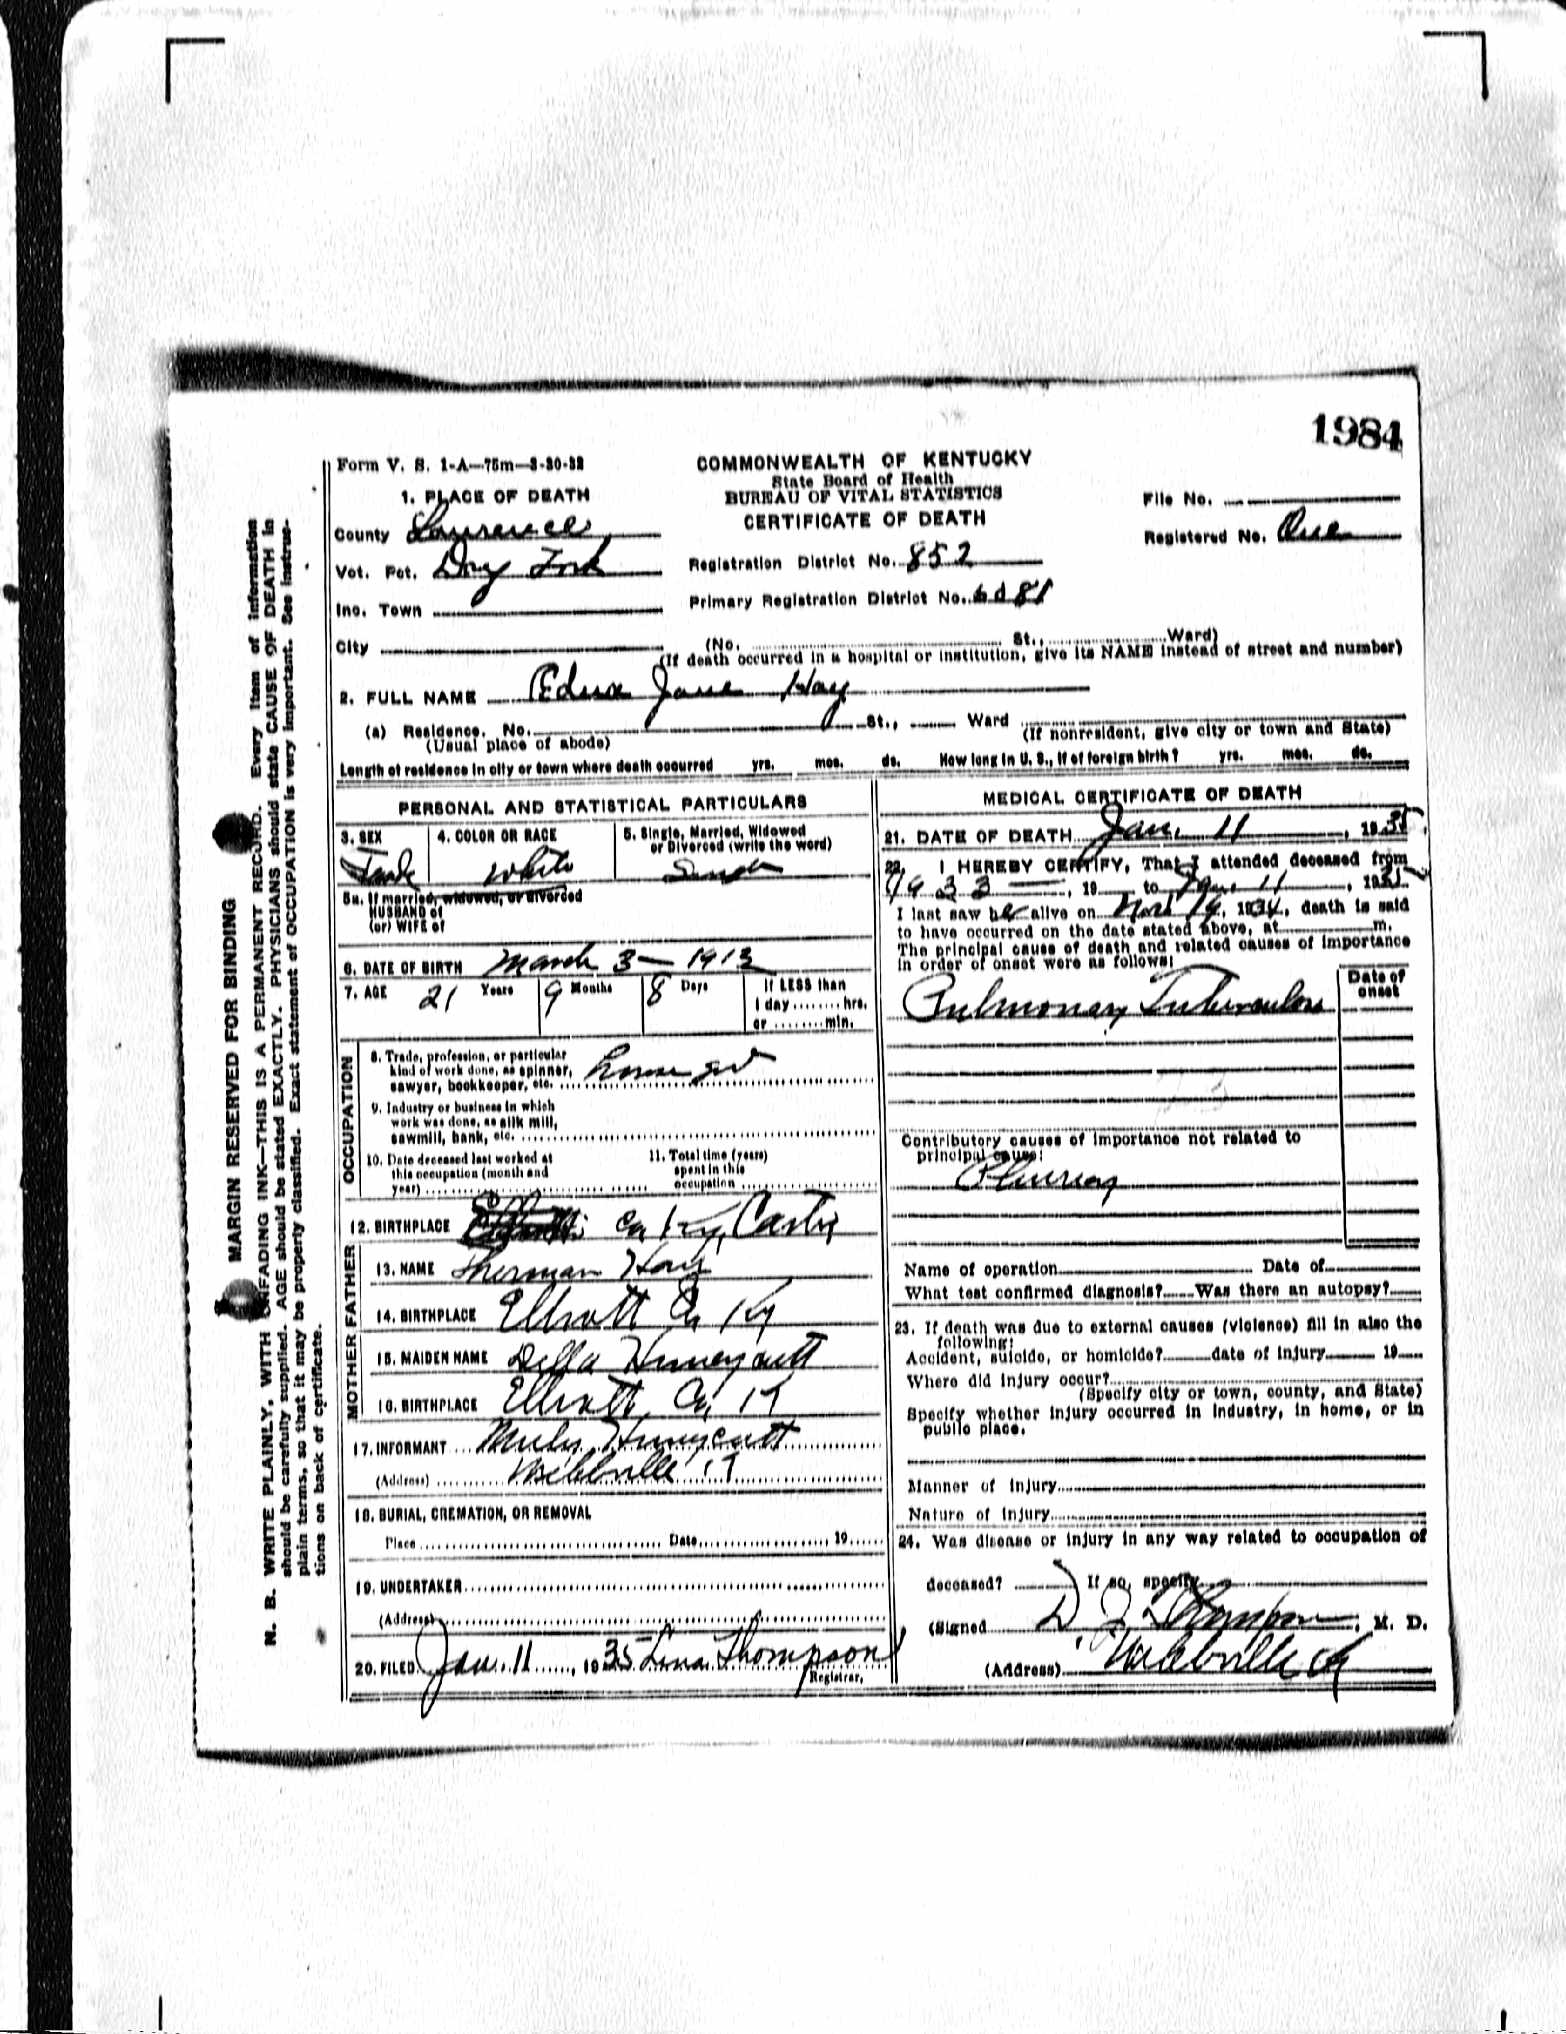 1984
Form V. S. 1-A—75m—3-30-32
COMMONWEALTH OF KENTUCKY
State Board of Health
BUREAU OF VITAL STATISTICS
CERTIFICATE OF DEATH
File No.
Registered No. One
1. PLACE OF DEATH
County Lawrence
Vot. Pct. Dry Fork
Inc. Town
City
Registration District No. 852
Primary Registration District No. 6081
(No. St., Ward)
(If death occurred in a hospital or institution, give its NAME instead of street and number)
2. FULL NAME Edna Jane Hay
(a) Residence. No. St., Ward
(Usual place of abode)
(If nonresident, give city or town and State)
Length of residence in city or town where death occurred yrs. mos. ds. How long in U. S., if of foreign birth? yrs. mos. ds.
PERSONAL AND STATISTICAL PARTICULARS
3. SEX
4. COLOR OR RACE
White
5. Single, Married, Widowed
or Divorced (write the word)
Single
5a. If married, widowed, or divorced
HUSBAND of
(or) WIFE of
6. DATE OF BIRTH March 3 — 1913
7. AGE 21 Years 9 Months 8 Days
If LESS than
1 day ........ hrs.
or ........ min.
OCCUPATION
8. Trade, profession, or particular
kind of work done, as spinner,
sawyer, bookkeeper, etc.
9. Industry or business in which
work was done, as silk mill,
sawmill, bank, etc.
10. Date deceased last worked at
this occupation (month and
year)
11. Total time (years)
spent in this
occupation
12. BIRTHPLACE Co Ky, Carter
FATHER
13. NAME Sherman Hay
14. BIRTHPLACE Elliott Co Ky
MOTHER
15. MAIDEN NAME Della Huneycutt
16. BIRTHPLACE Elliott Co, KY
17. INFORMANT Huneycutt
(Address) Webbville KY
18. BURIAL, CREMATION, OR REMOVAL
Place Date 19
19. UNDERTAKER
(Address)
20. FILED Jan. 11, 1935 Lina Thompson
Registrar.
MEDICAL CERTIFICATE OF DEATH
21. DATE OF DEATH Jan. 11, 1935
22. I HEREBY CERTIFY, That I attended deceased from
1933 —, 19 to Jan. 11, 1935
I last saw her alive on Nov 19, 1934, death is said
to have occurred on the date stated above, at m.
The principal cause of death and related causes of importance
in order of onset were as follows:
Date of
onset
Pulmonary Tuberculosis
Contributory causes of importance not related to
principal cause:
Plurisy
Name of operation Date of
What test confirmed diagnosis? Was there an autopsy?
23. If death was due to external causes (violence) fill in also the
following:
Accident, suicide, or homicide? date of injury 19
Where did injury occur?
(Specify city or town, county, and State)
Specify whether injury occurred in industry, in home, or in
public place.
Manner of injury
Nature of injury
24. Was disease or injury in any way related to occupation of
deceased? If so, specify
(Signed D. J. Thompson, M. D.
(Address) Webbville Ky
MARGIN RESERVED FOR BINDING
N. B. WRITE PLAINLY, WITH UNFADING INK—THIS IS A PERMANENT RECORD. Every item of information
should be carefully supplied. AGE should be stated EXACTLY. PHYSICIANS should state CAUSE OF DEATH in
plain terms, so that it may be properly classified. Exact statement of OCCUPATION is very important. See instruc-
tions on back of certificate.